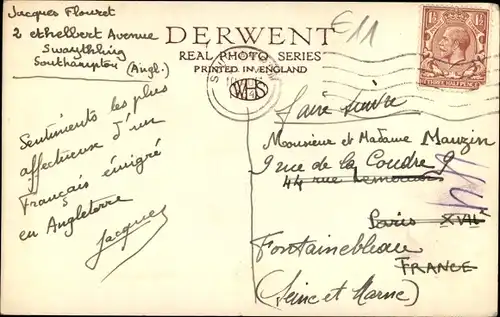 Jacques Flouret
2 ethelbert Avenue
Swaythling
Southampton (Angl.)
DERWENT
REAL PHOTO SERIES
PRINTED IN ENGLAND
€11
WHS
Sentiments les plus
affectueux d'un
Français émigré
en Angleterre
Jacques
faire suivre
Monsieur et Madame Mauzin
9 rue de la Coudre 9
44 rue
Paris XVII
Fontainebleau
FRANCE
(Seine et Marne)